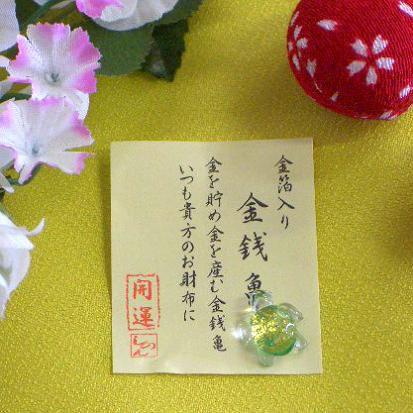 金箔入り
金銭亀
金を貯め金を産む金銭亀
いつも貴方のお財布に
開運